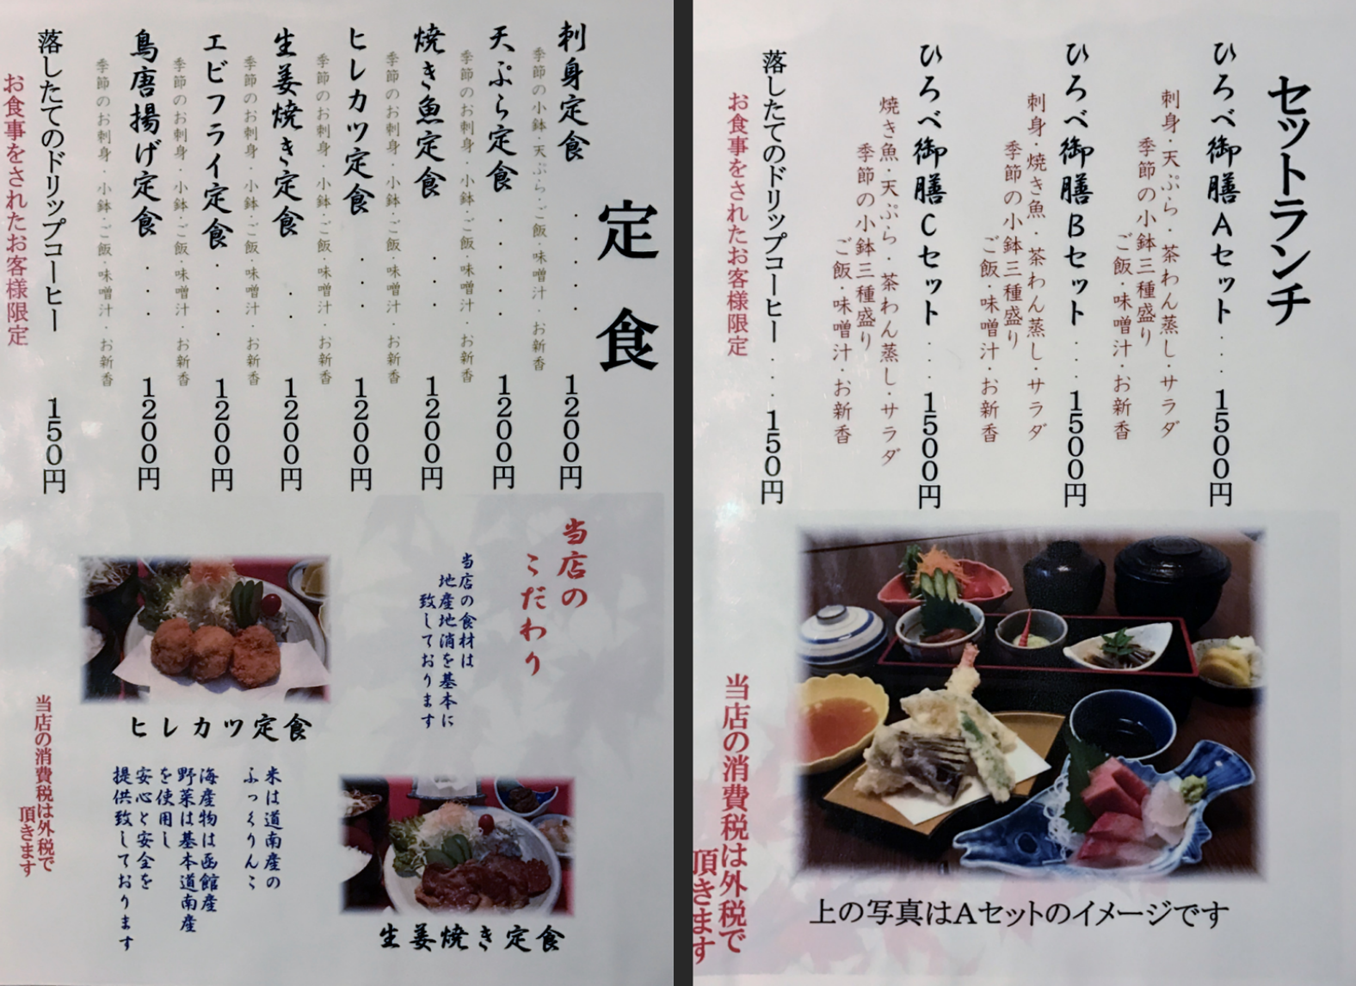 定食
刺身定食・・・・1200円
季節の小鉢・天ぷら・ご飯・味噌汁・お新香
天ぷら定食・・・・・1200円
季節のお刺身・小鉢・ご飯・味噌汁・お新香
焼き魚定食・・・1200円
季節のお刺身・小鉢・ご飯・味噌汁・お新香
ヒレカツ定食・・・1200円
季節のお刺身・小鉢・ご飯・味噌汁・お新香
生姜焼き定食・・1200円
季節のお刺身・小鉢・ご飯・味噌汁・お新香
エビフライ定食・・・・1200円
季節のお刺身・小鉢・ご飯・味噌汁・お新香
鳥唐揚げ定食・・・1200円
季節のお刺身・小鉢・ご飯・味噌汁・お新香
落したてのドリップコーヒー 150円
お食事をされたお客様限定
当店の
こだわり
当店の食材は
地産地消を基本に
致しております
ヒレカツ定食
生姜焼き定食
米は道南産の
ふっくりんこ
海産物は函館産
野菜は基本道南産
を使用し
安心と安全を
提供致しております
当店の消費税は外税で
頂きます
セットランチ
ひろべ御膳Aセット・・・1500円
刺身・天ぷら・茶わん蒸し・サラダ
季節の小鉢三種盛り
ご飯・味噌汁・お新香
ひろべ御膳Bセット・・・1500円
刺身・焼き魚・茶わん蒸し・サラダ
季節の小鉢三種盛り
ご飯・味噌汁・お新香
ひろべ御膳Cセット・・・1500円
焼き魚・天ぷら・茶わん蒸し・サラダ
季節の小鉢三種盛り
ご飯・味噌汁・お新香
落したてのドリップコーヒー・・・150円
お食事をされたお客様限定
当店の消費税は外税で
頂きます
上の写真はAセットのイメージです